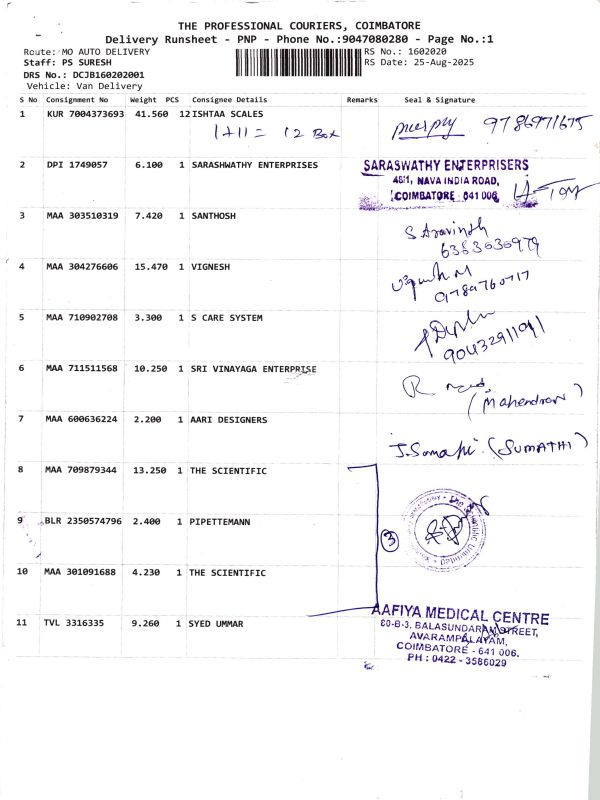 THE PROFESSIONAL COURIERS, COIMBATORE
Delivery Runsheet - PNP - Phone No.:9047080280 - Page No.:1
Route: MO AUTO DELIVERY
RS No.: 1602020
Staff: PS SURESH
RS Date: 25-Aug-2025
DRS No.: DCJB160202001
Vehicle: Van Delivery
S No Consignment No Weight PCS Consignee Details Remarks Seal & Signature
1 KUR 7004373693 41.560 12 ISHTAA SCALES
1+11 = 12 Box
9786971675
2 DPI 1749057 6.100 1 SARASHWATHY ENTERPRISES
SARASWATHY ENTERPRISERS
48/1, NAVA INDIA ROAD,
COIMBATORE - 641 006.
3 MAA 303510319 7.420 1 SANTHOSH
S Aravinth
6383636979
4 MAA 304276606 15.470 1 VIGNESH
Vignesh M
9789760717
5 MAA 710902708 3.300 1 S CARE SYSTEM
9043291191
6 MAA 711511568 10.250 1 SRI VINAYAGA ENTERPRISE
(Mahendran)
7 MAA 600636224 2.200 1 AARI DESIGNERS
J. Sumathi (SUMATHI)
8 MAA 709879344 13.250 1 THE SCIENTIFIC
9 BLR 2350574796 2.400 1 PIPETTEMANN
3
10 MAA 301091688 4.230 1 THE SCIENTIFIC
11 TVL 3316335 9.260 1 SYED UMMAR
AAFIYA MEDICAL CENTRE
80-B-3, BALASUNDARAM STREET,
AVARAMPALAYAM,
COIMBATORE - 641 006.
PH : 0422 - 3586029